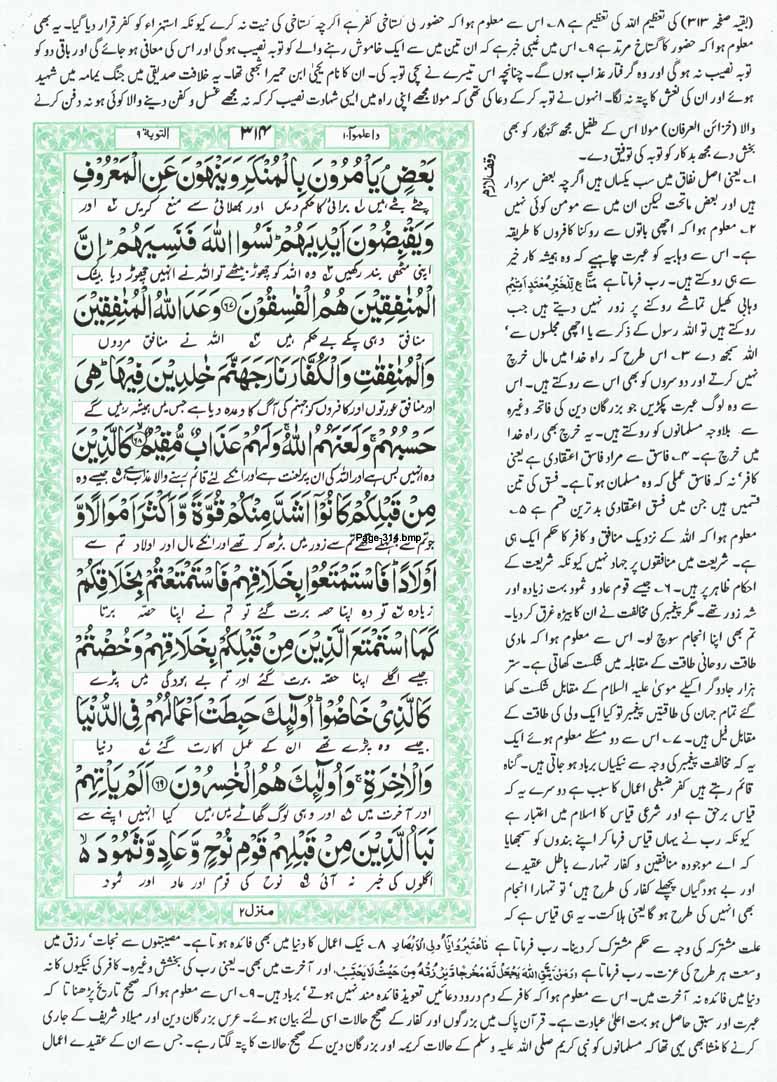 (بقیہ صفحہ ۳۱۳) کی تعظیم اللہ کی تعظیم ہے ۸؎ اس سے معلوم ہوا کہ حضور کی گستاخی کفر ہے اگرچہ گستاخی کی نیت نہ کرے کیونکہ استہزاء کو کفر قرار دیا گیا۔ یہ بھی
معلوم ہوا کہ حضور کا گستاخ مرتد ہے ۹؎ اس میں غیبی خبر ہے کہ ان تین میں سے ایک خاموش رہنے والے کو توبہ نصیب ہو گی اور اس کی معافی ہو جائے گی اور باقی دو کو
توبہ نصیب نہ ہو گی اور وہ گرفتار عذاب ہوں گے۔ چنانچہ اس تیسرے نے سچی توبہ کی۔ ان کا نام یحییٰ ابن حمیر اشجعی تھا۔ یہ خلافت صدیقی میں جنگ یمامہ میں شہید
ہوئے اور ان کی نعش کا پتہ نہ لگا۔ انہوں نے توبہ کر کے دعا کی تھی کہ مولا مجھے اپنی راہ میں ایسی شہادت نصیب کر کہ نہ مجھے غسل و کفن دینے والا کوئی ہو نہ دفن کرنے
والا (خزائن العرفان) مولا اس کے طفیل مجھ گنہگار کو بھی
بخش دے مجھ بدکار کو توبہ کی توفیق دے۔
۱؎ یعنی اصل نفاق میں سب یکساں ہیں اگرچہ بعض سردار
ہیں اور بعض ماتحت لیکن ان میں سے مومن کوئی نہیں
۲؎ معلوم ہوا کہ اچھی باتوں سے روکنا کافروں کا طریقہ
ہے۔ اس سے وہابیہ کو عبرت چاہیے کہ وہ ہمیشہ کار خیر
سے ہی روکتے ہیں۔ رب فرماتا ہے مَنَّاعٍ لِّلْخَیْرِ مُعْتَدٍ اَثِیْمٍ
وہابی کھیل تماشے روکنے پر زور نہیں دیتے ہیں جب
روکتے ہیں تو اللہ رسول کے ذکر سے یا اچھی مجلسوں سے‘
اللہ سمجھ دے ۳؎ اس طرح کہ راہ خدا میں مال خرچ
نہیں کرتے اور دوسروں کو بھی اس سے روکتے ہیں۔ اس
سے وہ لوگ عبرت پکڑیں جو بزرگان دین کی فاتحہ وغیرہ
سے بلاوجہ مسلمانوں کو روکتے ہیں۔ یہ خرچ بھی راہ خدا
میں خرچ ہے۔ ۴؎ فاسق سے مراد فاسق اعتقادی ہے یعنی
کافر‘ نہ کہ فاسق عملی کہ وہ مسلمان ہوتا ہے۔ فسق کی تین
قسمیں ہیں جن میں فسق اعتقادی بدترین قسم ہے ۵؎
معلوم ہوا کہ اللہ کے نزدیک منافق و کافر کا حکم ایک ہی
ہے۔ شریعت میں منافقوں پر جہاد نہیں کیونکہ شریعت کے
احکام ظاہر پر ہیں۔ ۶؎ جیسے قوم عاد و ثمود بہت زیادہ اور
شہ زور تھے۔ مگر پیغمبر کی مخالفت نے ان کا بیڑہ غرق کر دیا۔
تم بھی اپنا انجام سوچ لو۔ اس سے معلوم ہوا کہ مادی
طاقت روحانی طاقت کے مقابلہ میں شکست کھاتی ہے۔ ستر
ہزار جادوگر اکیلے موسیٰ علیہ السلام کے مقابل شکست کھا
گئے تمام جہان کی طاقتیں پیغمبر تو کیا ایک ولی کی طاقت کے
مقابل فیل ہیں۔ ۷؎ اس سے دو مسئلے معلوم ہوئے ایک
یہ کہ مخالفت پیغمبر کی وجہ سے نیکیاں برباد ہو جاتی ہیں۔ گناہ
قائم رہتے ہیں کفر ضبطی اعمال کا سبب ہے دوسرے یہ کہ
قیاس برحق ہے اور شرعی قیاس کا اسلام میں اعتبار ہے
کیونکہ رب نے یہاں قیاس فرما کر اپنے بندوں کو سمجھایا
کہ اے موجودہ منافقین و کفار تمہارے باطل عقیدے
اور بے ہودگیاں پچھلے کفار کی طرح ہیں‘ تو تمہارا انجام
بھی انہیں کی طرح ہو گا یعنی ہلاکت۔ یہ ہی قیاس ہے کہ
وقف لازم
واعلموا ۱۰
۳۱۴
التوبة ۹
بَعْضٍ يَأْمُرُوْنَ بِالْمُنْكَرِ وَيَنْهَوْنَ عَنِ الْمَعْرُوْفِ
چٹے بٹے ہیں ۱؎ برائی کا حکم دیں اور بھلائی سے منع کریں ۲؎ اور
وَيَقْبِضُوْنَ اَيْدِيَهُمْ نَسُوا اللّٰهَ فَنَسِيَهُمْ اِنَّ
اپنی مٹھی بند رکھیں ۳؎ وہ اللہ کو چھوڑ بیٹھے تو اللہ نے انہیں چھوڑ دیا بیشک
الْمُنٰفِقِيْنَ هُمُ الْفٰسِقُوْنَ ۶۷ وَعَدَ اللّٰهُ الْمُنٰفِقِيْنَ
منافق وہی پکے بے حکم ہیں ۴؎ اللہ نے منافق مردوں
وَالْمُنٰفِقٰتِ وَالْكُفَّارَ نَارَ جَهَنَّمَ خٰلِدِيْنَ فِيْهَا هِيَ
اور منافق عورتوں اور کافروں کو جہنم کی آگ کا وعدہ دیا ہے جس میں ہمیشہ رہیں گے
حَسْبُهُمْ وَلَعَنَهُمُ اللّٰهُ وَلَهُمْ عَذَابٌ مُّقِيْمٌ ۶۸ كَالَّذِيْنَ
وہ انہیں بس ہے اور اللہ کی ان پر لعنت ہے اور انکے لئے قائم رہنے والا عذاب ہے ۵؎ جیسے وہ
مِنْ قَبْلِكُمْ كَانُوْٓا اَشَدَّ مِنْكُمْ قُوَّةً وَّاَكْثَرَ اَمْوَالًا وَّ
جو تم سے پہلے تھے تم سے زور میں بڑھ کر تھے اور انکے مال اور اولاد تم سے
Page 314.bmp
اَوْلَادًا فَاسْتَمْتَعُوْا بِخَلَاقِهِمْ فَاسْتَمْتَعْتُمْ بِخَلَاقِكُمْ
زیادہ ۶؎ تو وہ اپنا حصہ برت گئے تو تم نے اپنا حصہ برتا
كَمَا اسْتَمْتَعَ الَّذِيْنَ مِنْ قَبْلِكُمْ بِخَلَاقِهِمْ وَخُضْتُمْ
جیسے اگلے اپنا حصہ برت گئے اور تم بے ہودگی میں پڑے
كَالَّذِيْ خَاضُوْا اُولٰٓئِكَ حَبِطَتْ اَعْمَالُهُمْ فِي الدُّنْيَا
جیسے وہ پڑے تھے ان کے عمل اکارت گئے ۷؎ دنیا
وَالْاٰخِرَةِ وَاُولٰٓئِكَ هُمُ الْخٰسِرُوْنَ ۶۹ اَلَمْ يَأْتِهِمْ
اور آخرت میں ۸؎ اور وہی لوگ گھاٹے میں ہیں کیا انہیں اپنے سے
نَبَاُ الَّذِيْنَ مِنْ قَبْلِهِمْ قَوْمِ نُوْحٍ وَّعَادٍ وَّثَمُوْدَ
اگلوں کی خبر نہ آئی ۹؎ نوح کی قوم اور عاد اور ثمود
منزل ۲
علت مشترکہ کی وجہ سے حکم مشترک کر دینا۔ رب فرماتا ہے فَاعْتَبِرُوْا یٰٓاُولِی الْاَبْصَارِ ۸؎ نیک اعمال کا دنیا میں بھی فائدہ ہوتا ہے۔ مصیبتوں سے نجات‘ رزق میں
وسعت ہر طرح کی عزت۔ رب فرماتا ہے وَمَنْ یَّتَّقِ اللّٰهَ یَجْعَلْ لَّهٗ مَخْرَجًا وَّیَرْزُقْهُ مِنْ حَیْثُ لَا یَحْتَسِبُ اور آخرت میں بھی۔ یعنی رب کی بخشش وغیرہ۔ کافر کی نیکیوں کا نہ
دنیا میں فائدہ نہ آخرت میں۔ اس سے معلوم ہوا کہ کافر کے دم درود دعائیں تعویذ فائدہ مند نہیں ہوتے‘ برباد ہیں۔ ۹؎ اس سے معلوم ہوا کہ صحیح تاریخ پڑھنا تا کہ
عبرت اور سبق حاصل ہو بہت اعلیٰ عبادت ہے۔ قرآن پاک میں بزرگوں اور کفار کے صحیح حالات اسی لئے بیان ہوئے۔ عرس بزرگان دین اور میلاد شریف کے جاری
کرنے کا منشا بھی یہی تھا کہ مسلمانوں کو نبی کریم صلی اللہ علیہ وسلم کے حالات کریمہ اور بزرگان دین کے صحیح حالات کا پتہ لگتا رہے۔ جس سے ان کے عقیدے اعمال